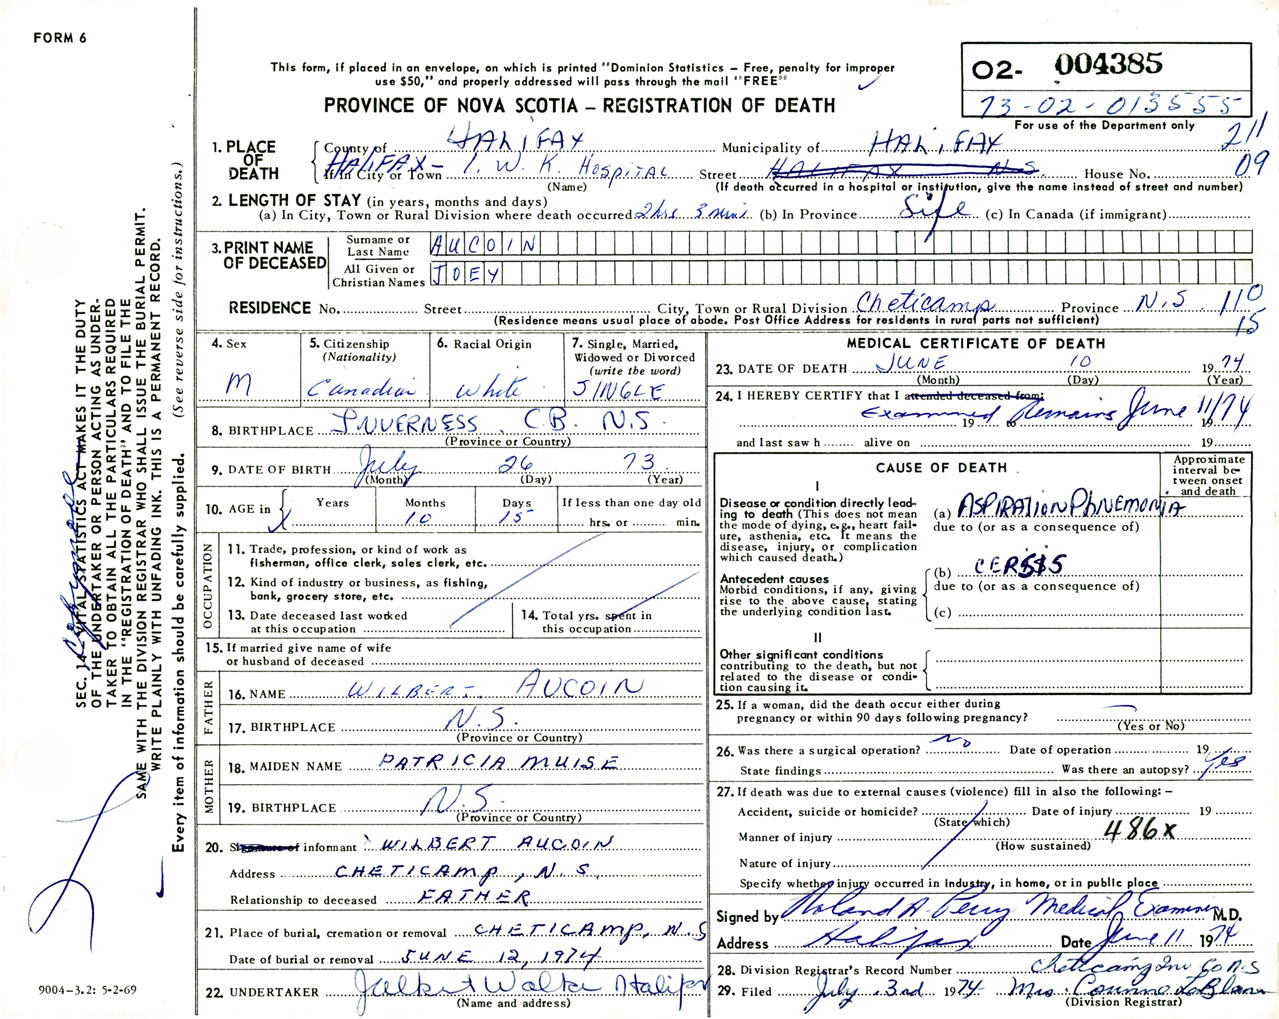 FORM 6
This form, if placed in an envelope, on which is printed "Dominion Statistics – Free, penalty for improper
use $50," and properly addressed will pass through the mail "FREE"
PROVINCE OF NOVA SCOTIA – REGISTRATION OF DEATH
02- 004385
73-02-013555
For use of the Department only
211
09
1. PLACE OF DEATH
County of HALIFAX Municipality of HALIFAX
If in City or Town HALIFAX – I. W. K. HOSPITAL Street HALIFAX N S House No.
(Name) (If death occurred in a hospital or institution, give the name instead of street and number)
2. LENGTH OF STAY (in years, months and days)
(a) In City, Town or Rural Division where death occurred 2 hrs 3 min (b) In Province Life (c) In Canada (if immigrant)
3. PRINT NAME OF DECEASED
Surname or Last Name AUCOIN
All Given or Christian Names JOEY
RESIDENCE No. Street City, Town or Rural Division Cheticamp Province N.S 110
(Residence means usual place of abode. Post Office Address for residents in rural parts not sufficient) 15
4. Sex
M
5. Citizenship (Nationality)
Canadian
6. Racial Origin
White
7. Single, Married, Widowed or Divorced (write the word)
SINGLE
8. BIRTHPLACE INVERNESS C.B. N.S.
(Province or Country)
9. DATE OF BIRTH July 26 73
(Month) (Day) (Year)
10. AGE in Years Months 10 Days 15 If less than one day old hrs. or min.
OCCUPATION
11. Trade, profession, or kind of work as
fisherman, office clerk, sales clerk, etc.
12. Kind of industry or business, as fishing,
bank, grocery store, etc.
13. Date deceased last worked
at this occupation
14. Total yrs. spent in
this occupation
15. If married give name of wife
or husband of deceased
FATHER
16. NAME WILBERT AUCOIN
17. BIRTHPLACE N.S.
(Province or Country)
MOTHER
18. MAIDEN NAME PATRICIA MUISE
19. BIRTHPLACE N.S.
(Province or Country)
20. Signature of informant WILBERT AUCOIN
Address CHETICAMP, N.S.
Relationship to deceased FATHER
21. Place of burial, cremation or removal CHETICAMP, N.S
Date of burial or removal JUNE 12, 1974
22. UNDERTAKER Walker Halifax
(Name and address)
MEDICAL CERTIFICATE OF DEATH
23. DATE OF DEATH JUNE 10 1974
(Month) (Day) (Year)
24. I HEREBY CERTIFY that I attended deceased from:
Examined Remains June 11/74
19 to 19
and last saw h alive on 19
CAUSE OF DEATH
Approximate interval between onset and death
I
Disease or condition directly lead-
ing to death (This does not
mean the mode of dying, e.g., heart fail-
ure, asthenia, etc. It means the
disease, injury, or complication
which caused death.)
(a) ASPIRATION PHNEMONIA
due to (or as a consequence of)
Antecedent causes
Morbid conditions, if any, giving
rise to the above cause, stating
the underlying condition last.
(b)
due to (or as a consequence of)
(c)
II
Other significant conditions
contributing to the death, but not
related to the disease or condi-
tion causing it.
25. If a woman, did the death occur either during
pregnancy or within 90 days following pregnancy?
(Yes or No)
26. Was there a surgical operation? No Date of operation 19
State findings Was there an autopsy? Yes
27. If death was due to external causes (violence) fill in also the following: –
Accident, suicide or homicide? Date of injury 19
(State which)
Manner of injury 486x
(How sustained)
Nature of injury
Specify whether injury occurred in Industry, in home, or in public place
Signed by Roland A. Perry Medical Examiner M.D.
Address Halifax Date June 11 1974
28. Division Registrar's Record Number Cheticamp Inv Co N.S
29. Filed July 3rd 1974 Mrs. Corinne LeBlanc
(Division Registrar)
SEC. 14 – VITAL STATISTICS ACT MAKES IT THE DUTY
OF THE UNDERTAKER OR PERSON ACTING AS UNDER-
TAKER TO OBTAIN ALL THE PARTICULARS REQUIRED
IN THE "REGISTRATION OF DEATH" AND TO FILE THE
SAME WITH THE DIVISION REGISTRAR WHO SHALL ISSUE THE BURIAL PERMIT.
WRITE PLAINLY WITH UNFADING INK. THIS IS A PERMANENT RECORD.
Every item of information should be carefully supplied. (See reverse side for instructions.)
9004-3.2: 5-2-69